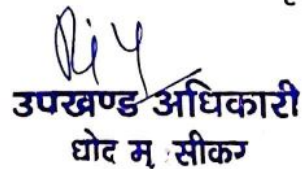 उपखण्ड अधिकारी
धोद मु. सीकर